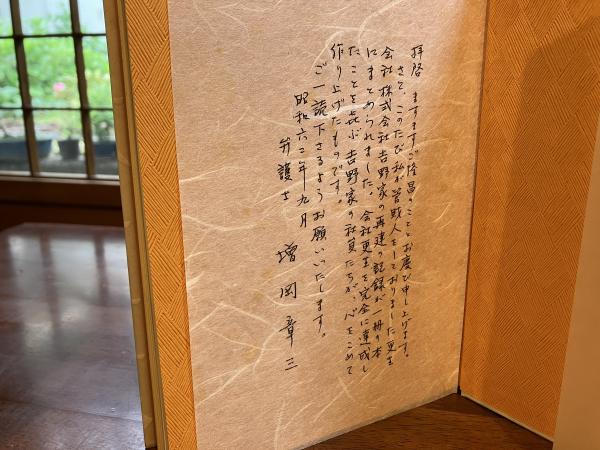 拝啓 ますますご隆昌のこととお慶び申し上げます。
さて、このたび私が管財人をしておりました更生
会社株式会社吉野家の再建の記録が一冊の本
にまとめられました。会社更生を完全に達成し
たことを喜ぶ吉野家の社員たちが、心をこめて
作り上げたものです。
ご一読下さるようお願いいたします。
昭和六二年九月
弁護士 増岡章三